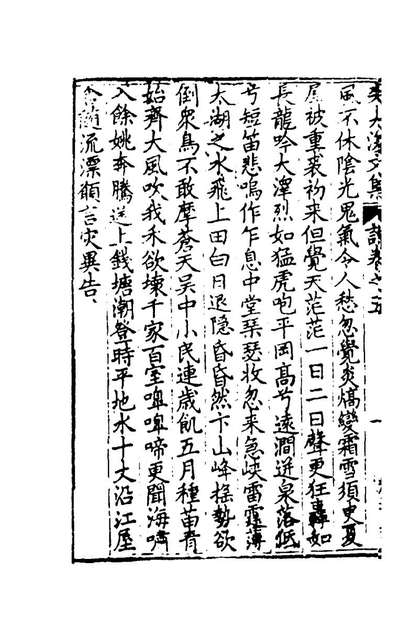 風不休陰光鬼氣令人愁忽覺炎熇變霜雪須臾夏
屋被重裘初来但覺天茫茫一日二日聲更狂轟如
長龍吟大澤烈如猛虎咆平岡高兮遠澗迸泉落低
兮短笛悲嗚作乍息中堂琴瑟收忽来急峽雷霆薄
太湖之水飛上田白日退隱昏昏然下山峰摇勢欲
倒衆鳥不敢摩蒼天吴中小民連歳飢五月種苗青
始齊大風吹我禾欲壊千家百室嗁嗁啼更聞海嘯
入餘姚奔騰送上錢塘潮登時平地水十丈沿江屋
流漂願言灾異告